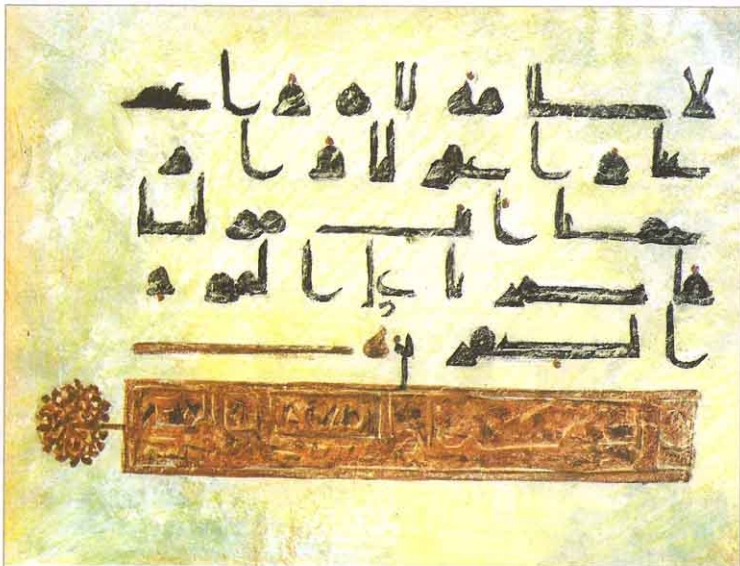 لا طاقة لنا به واعف
عنا واغفر لنا وار
حمنا انت مولينا
فانصرنا على القوم
الكفرين